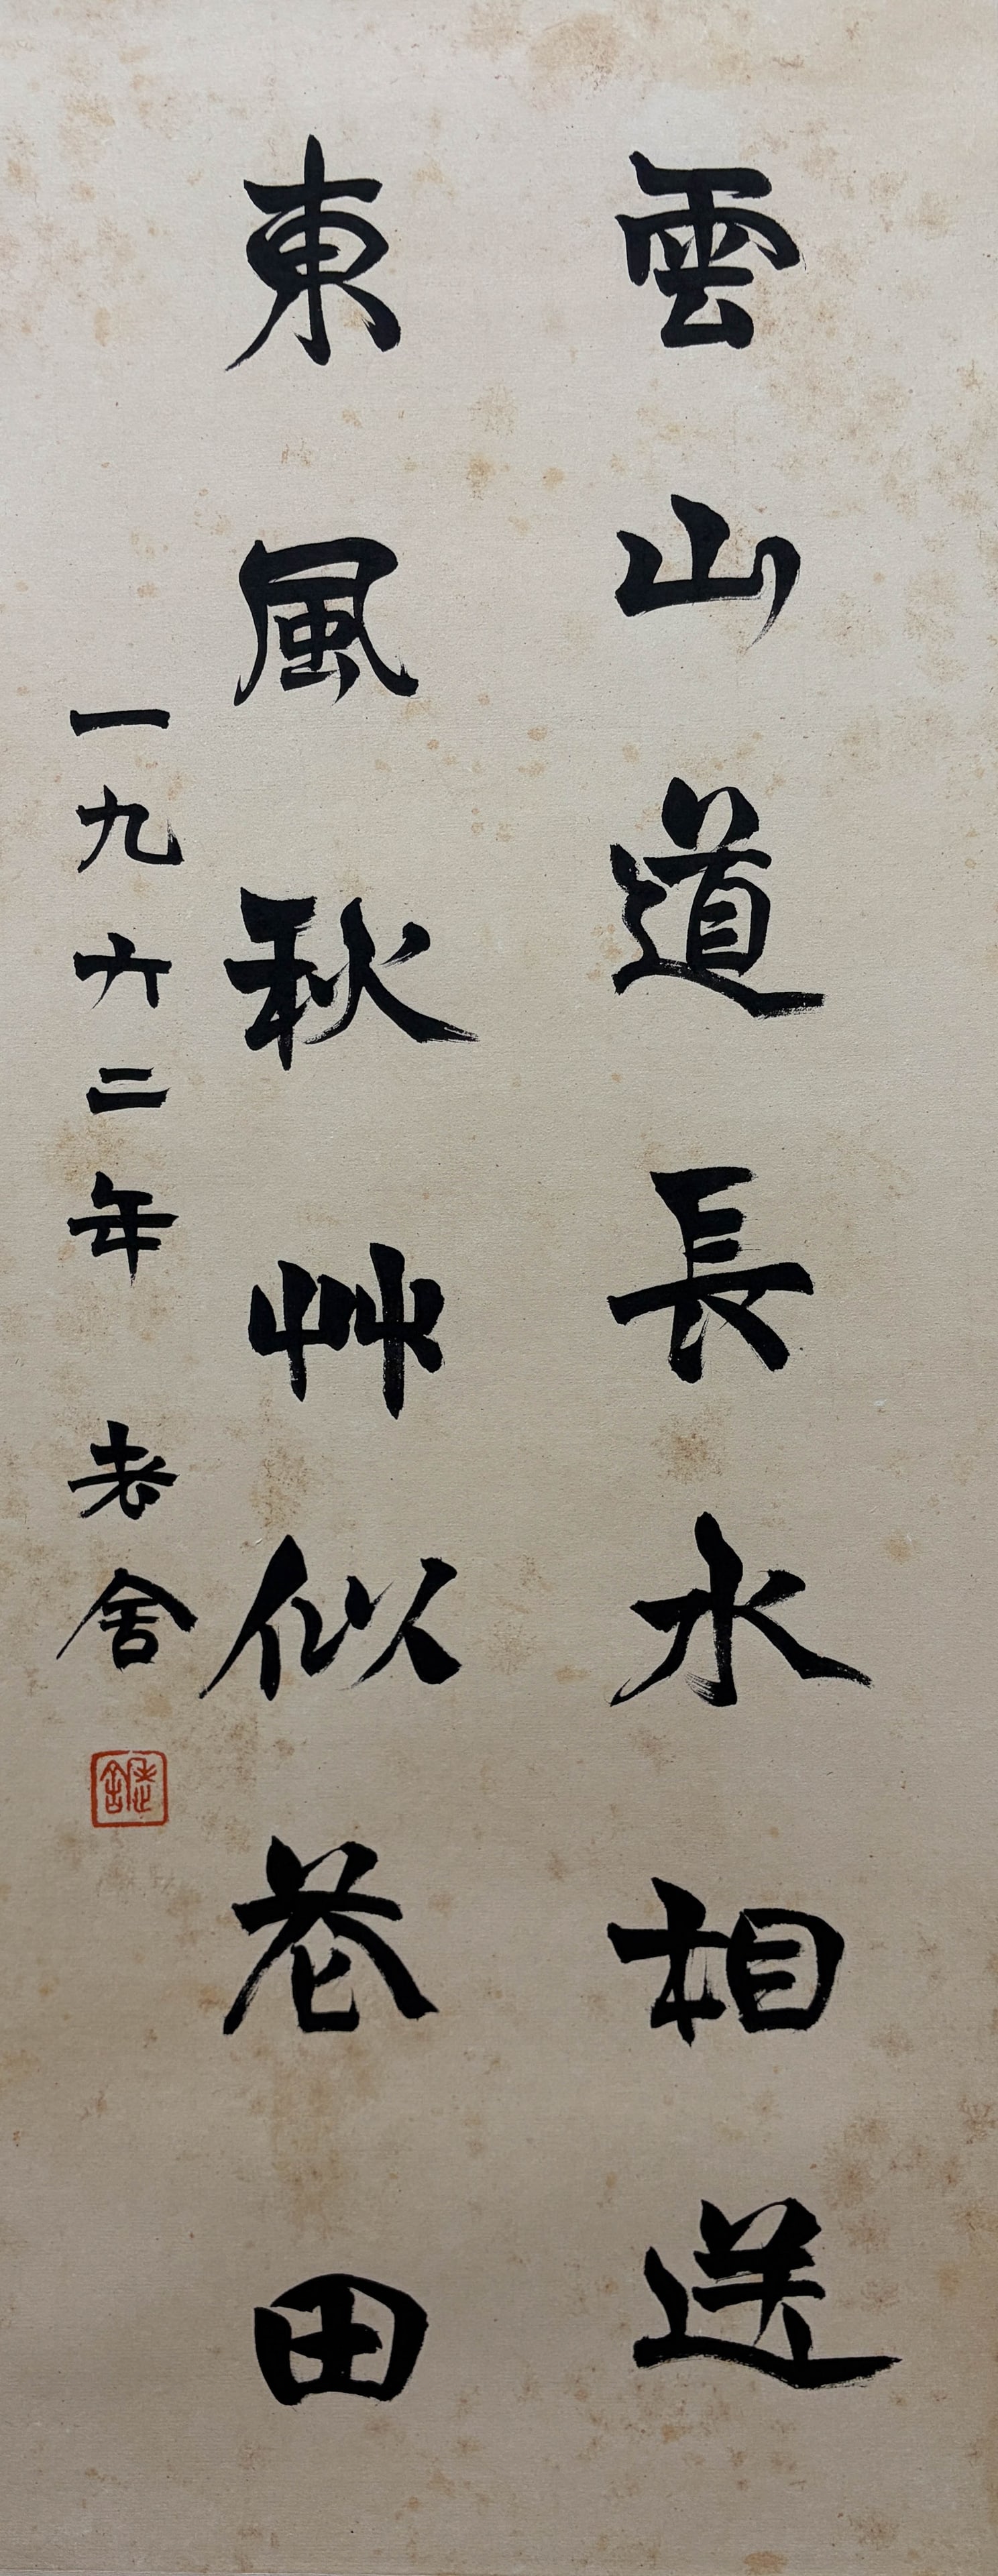 雲山道長水相送
東風秋艸似苍田
一九六二年 老舍
老舍